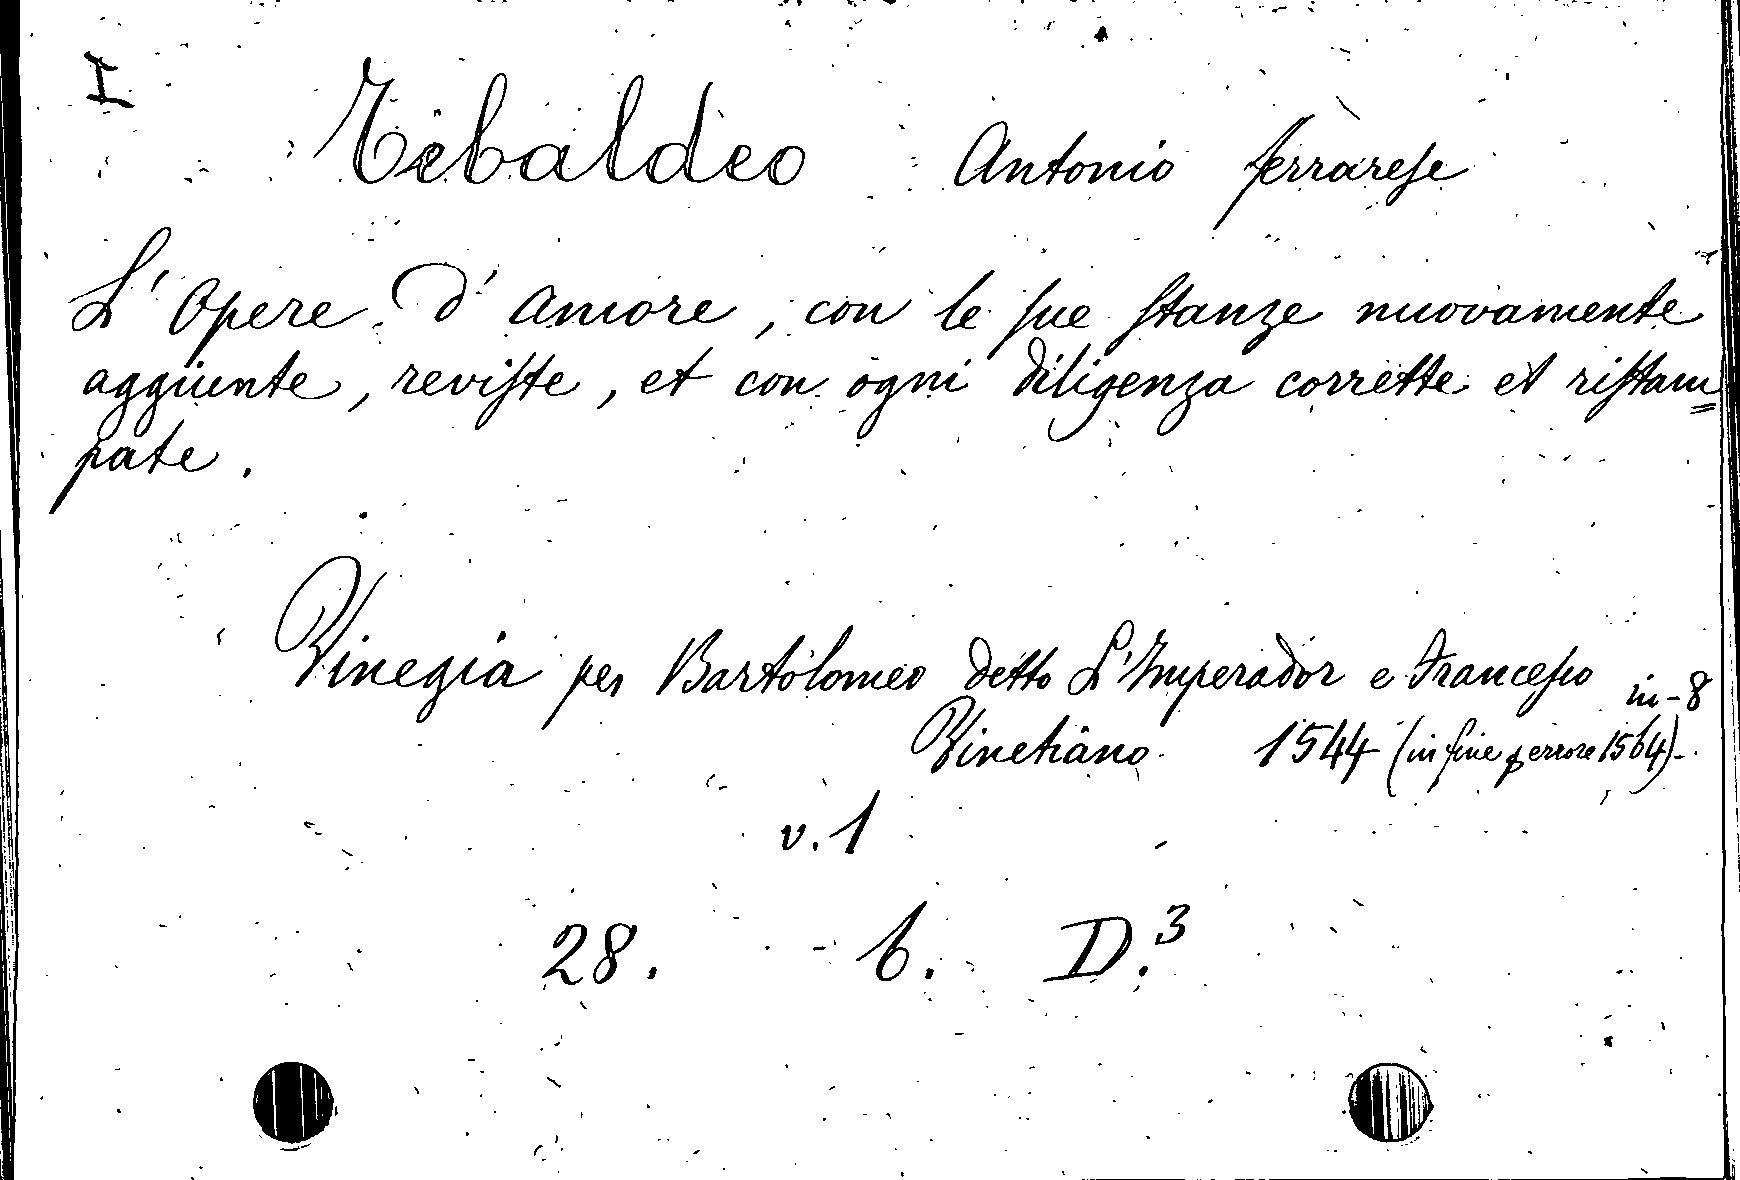 I
Tebaldeo Antonio ferrarese
L' Opere d' amore, con le sue stanze nuovamente
aggiunte, reviste, et con ogni diligenza corrette et ristam=
pate.
Vinegia per Bartolomeo detto L'Imperador e Francesco in-8
Vinetiano 1544 (in fine p errore 1564)-
v. 1
28. 6. D.3